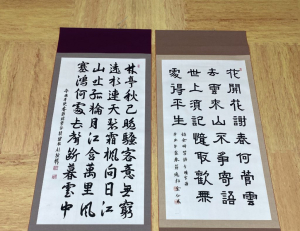 花開花謝春何管雲
去雲來山不爭寄語
世上須記認取歡無
處得平生
林亭秋已晚騷客意無窮
遠水連天碧霜楓向日紅
山吐孤輪月江含萬里風
塞鴻何處去聲斷暮雲中